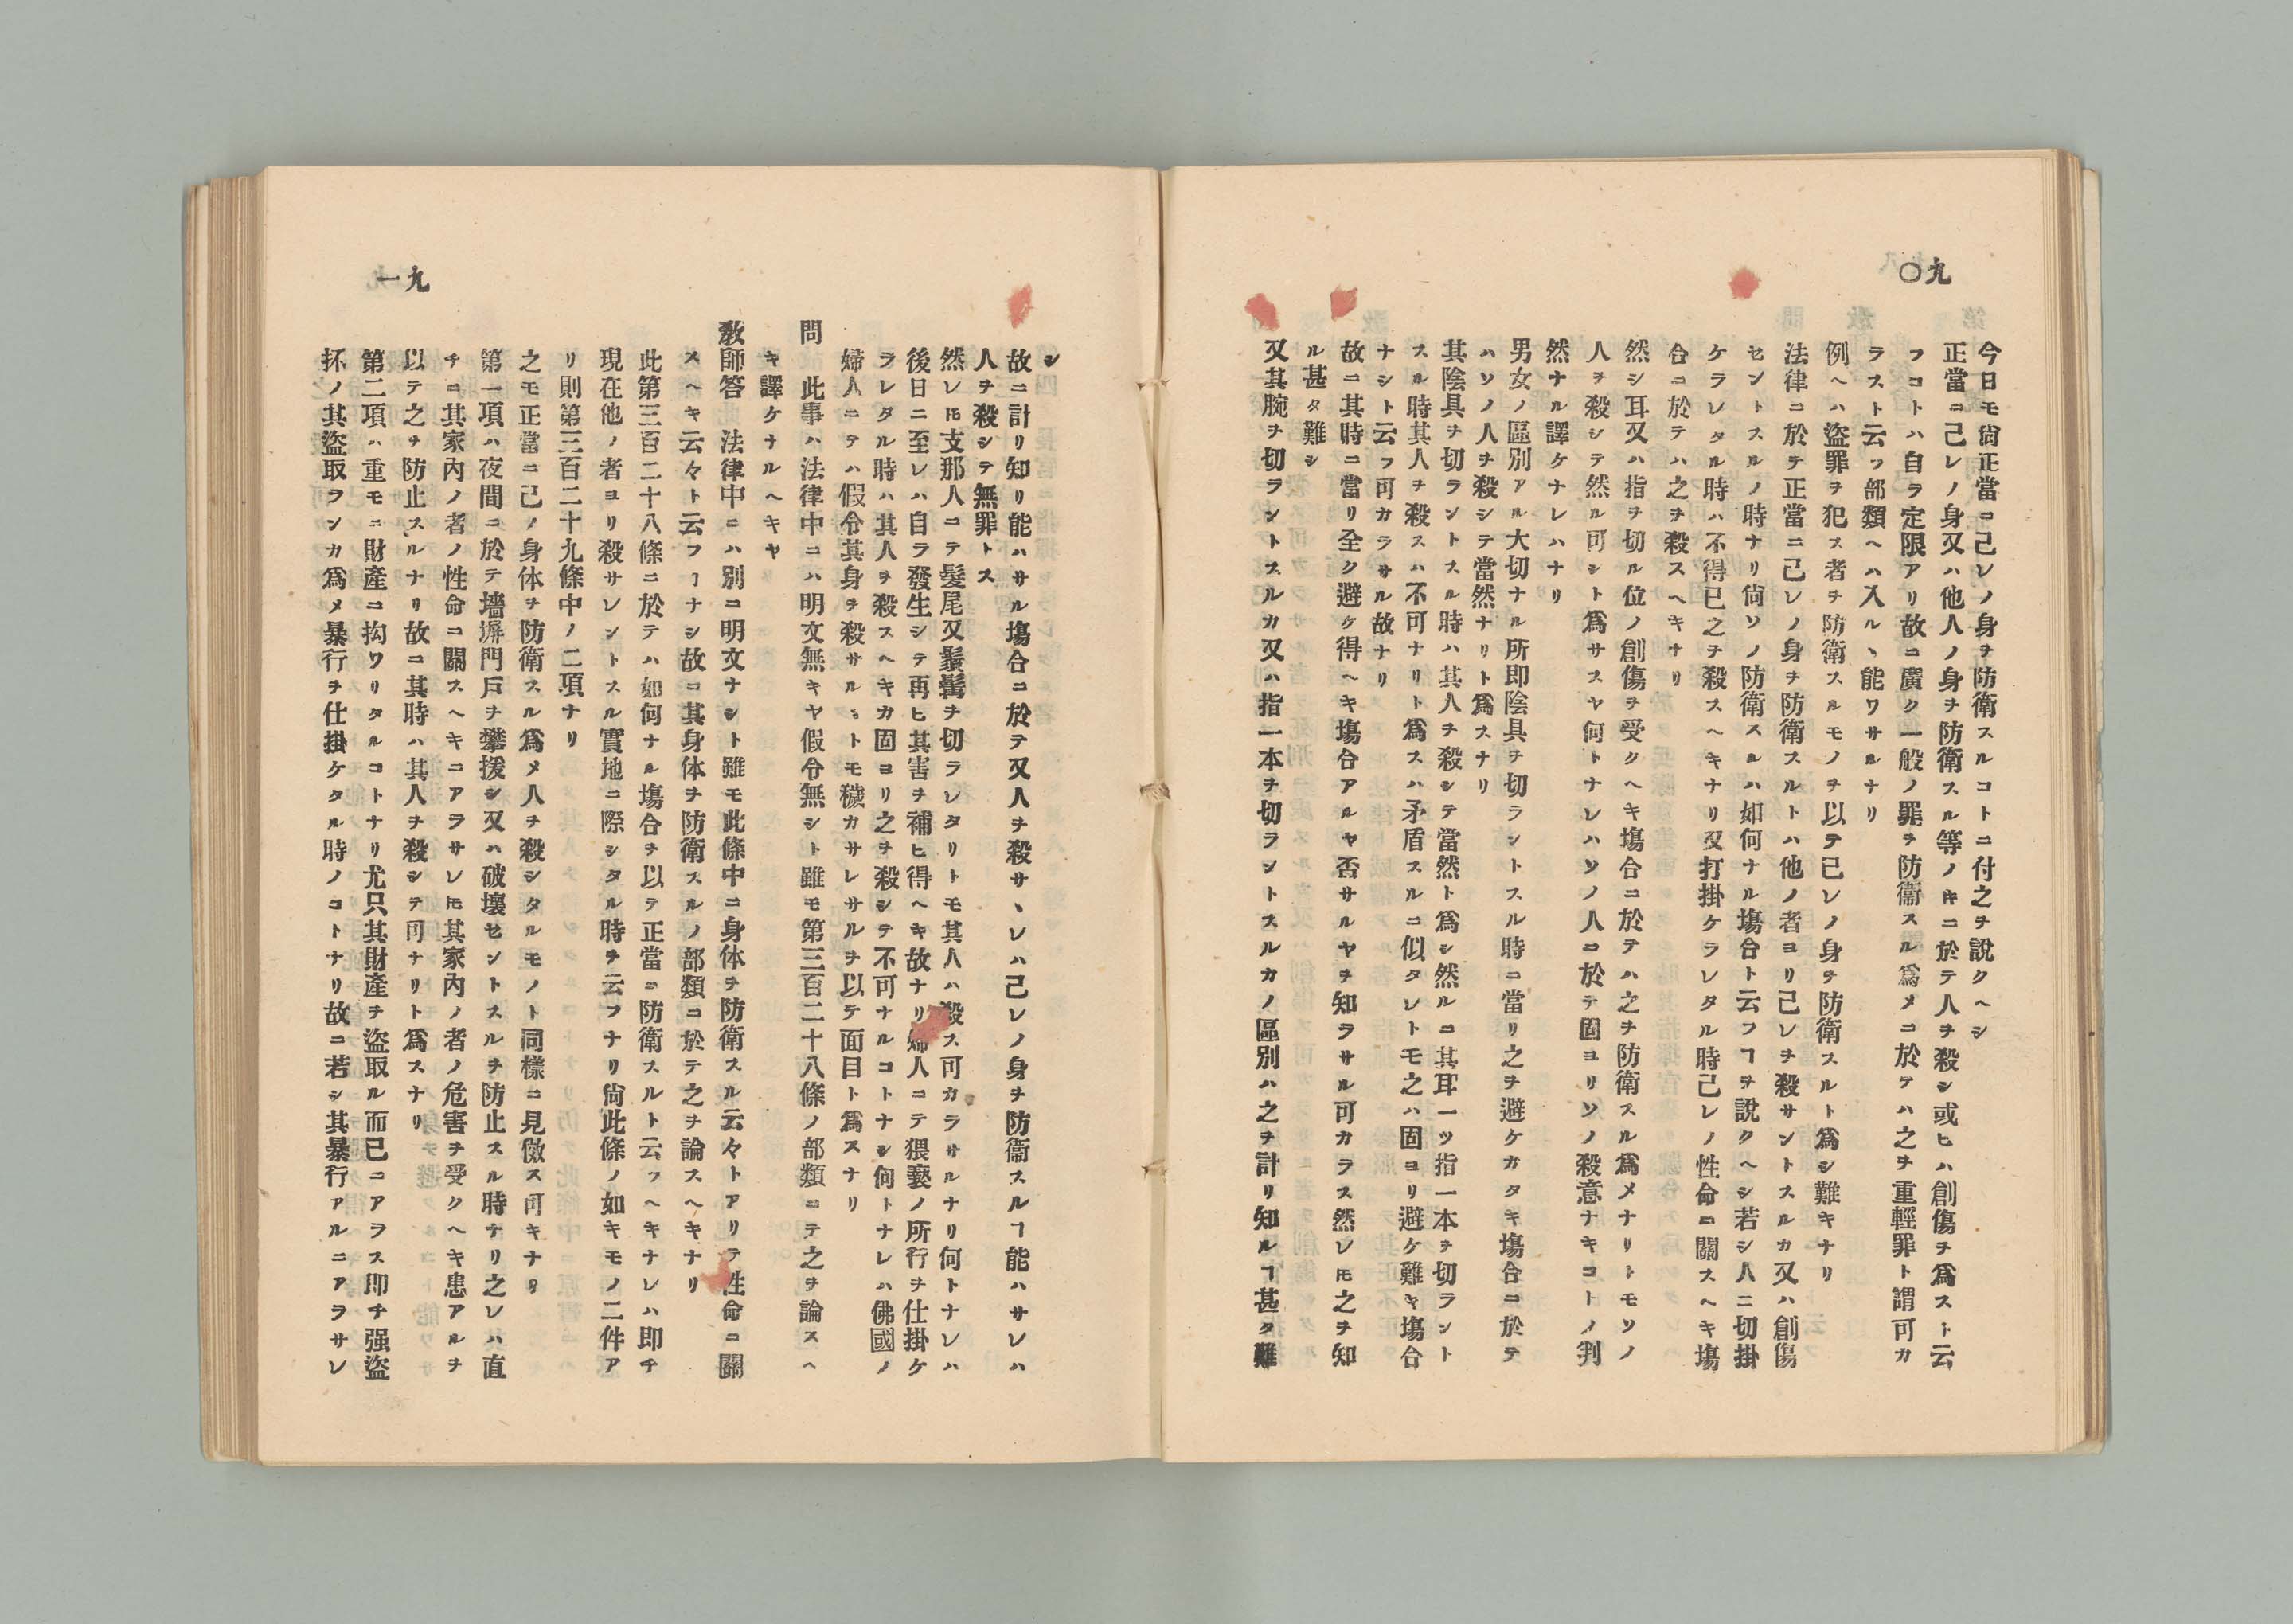 九〇
今日モ尙正當ニ己レノ身ヲ防衛スルコトニ付之ヲ說クヘシ
正當ニ己レノ身又ハ他人ノ身ヲ防衛スル等ノ𪜈ニ於テ人ヲ殺シ或ヒハ創傷ヲ爲スト云
フコトハ自ラ定限アリ故ニ廣ク一般ノ罪ヲ防衞スル爲メニ於テハ之ヲ重輕罪ト謂可カ
ラスト云フ部類ヘハ入ルヽ能ワサルナリ
例ヘハ盜罪ヲ犯ス者ヲ防衛スルモノヲ以テ己レノ身ヲ防衛スルト爲シ難キナリ
法律ニ於テ正當ニ己レノ身ヲ防衛スルトハ他ノ者ヨリ己レヲ殺サントスルカ又ハ創傷
セントスルノ時ナリ尙ソノ防衛スルハ如何ナル塲合ト云フヿヲ說クヘシ若シ人ニ切掛
ケラレタル時ハ不得已之ヲ殺スヘキナリ又打掛ケラレタル時己レノ性命ニ關スヘキ塲
合ニ於テハ之ヲ殺スヘキナリ
然シ耳又ハ指ヲ切ル位ノ創傷ヲ受クヘキ塲合ニ於テハ之ヲ防衛スル爲メナリトモソノ
人ヲ殺シテ然ル可シト爲サスヤ何トナレハソノ人ニ於テ固ヨリソノ殺意ナキコトノ判
然ナル譯ケナレハナリ
男女ノ區別アル大切ナル所即陰具ヲ切ラントスル時ニ當リ之ヲ避ケカタキ塲合ニ於テ
ハソノ人ヲ殺シテ當然ナリト爲スナリ
其陰具ヲ切ラントスル時ハ其人ヲ殺シテ當然ト爲シ然ルニ其耳一ツ指一本ヲ切ラント
スル時其人ヲ殺スハ不可ナリト爲スハ矛盾スルニ似タレトモ之ハ固ヨリ避ケ難キ塲合
ナシト云フ可カラサル故ナリ
故ニ其時ニ當リ全ク避ケ得ヘキ塲合アルヤ否サルヤヲ知ラサル可カラス然レ𪜈之ヲ知
ル甚タ難シ
又其腕ヲ切ラントスルカ又ハ指一本ヲ切ラントスルカノ區別ハ之ヲ計リ知ルヿ甚タ難
九一
シ
故ニ計リ知リ能ハサル塲合ニ於テ又人ヲ殺サヽレハ己レノ身ヲ防衞スルヿ能ハサレハ
人ヲ殺シテ無罪トス
然レ𪜈支那人ニテ髮尾又鬚髯ヲ切ラレタリトモ其人ハ殺ス可カラサルナリ何トナレハ
後日ニ至レハ自ラ發生シテ再ヒ其害ヲ補ヒ得ヘキ故ナリ婦人ニテ猥褻ノ所行ヲ仕掛ケ
ラレタル時ハ其人ヲ殺スヘキカ固ヨリ之ヲ殺シテ不可ナルコトナシ何トナレハ佛國ノ
婦人ニテハ假令其身ヲ殺サルヽトモ穢カサレサルヲ以テ面目ト爲スナリ
問　此事ハ法律中ニハ明文無キヤ假令無シト雖モ第三百二十八條ノ部類ニテ之ヲ論スヘ
キ譯ケナルヘキヤ
敎師答　法律中ニハ別ニ明文ナシト雖モ此條中ニ身体ヲ防衛スル云々トアリテ性命ニ關
スヘキ云々ト云フヿナシ故ニ其身体ヲ防衛スルノ部類ニ於テ之ヲ論スヘキナリ
此第三百二十八條ニ於テハ如何ナル塲合ヲ以テ正當ニ防衛スルト云フヘキナレハ即チ
現在他ノ者ヨリ殺サレントスル實地ニ際シタル時ヲ云フナリ尙此條ノ如キモノ二件ア
リ則第三百二十九條中ノ二項ナリ
之モ正當ニ己ノ身体ヲ防衛スル爲メ人ヲ殺シタルモノト同樣ニ見傚ス可キナリ
第一項ハ夜間ニ於テ墻塀門戶ヲ攀援シ又ハ破壞セントスルヲ防止スル時ナリ之レハ直
チニ其家內ノ者ノ性命ニ關スヘキニアラサレ𪜈其家內ノ者ノ危害ヲ受クヘキ患アルヲ
以テ之ヲ防止スルナリ故ニ其時ハ其人ヲ殺シテ可ナリト爲スナリ
第二項ハ重モニ財產ニ抅ワリタルコトナリ尤只其財產ヲ盜取ル而已ニアラス即チ强盜
抔ノ其盜取ランカ爲メ暴行ヲ仕掛ケタル時ノコトナリ故ニ若シ其暴行アルニアラサレ